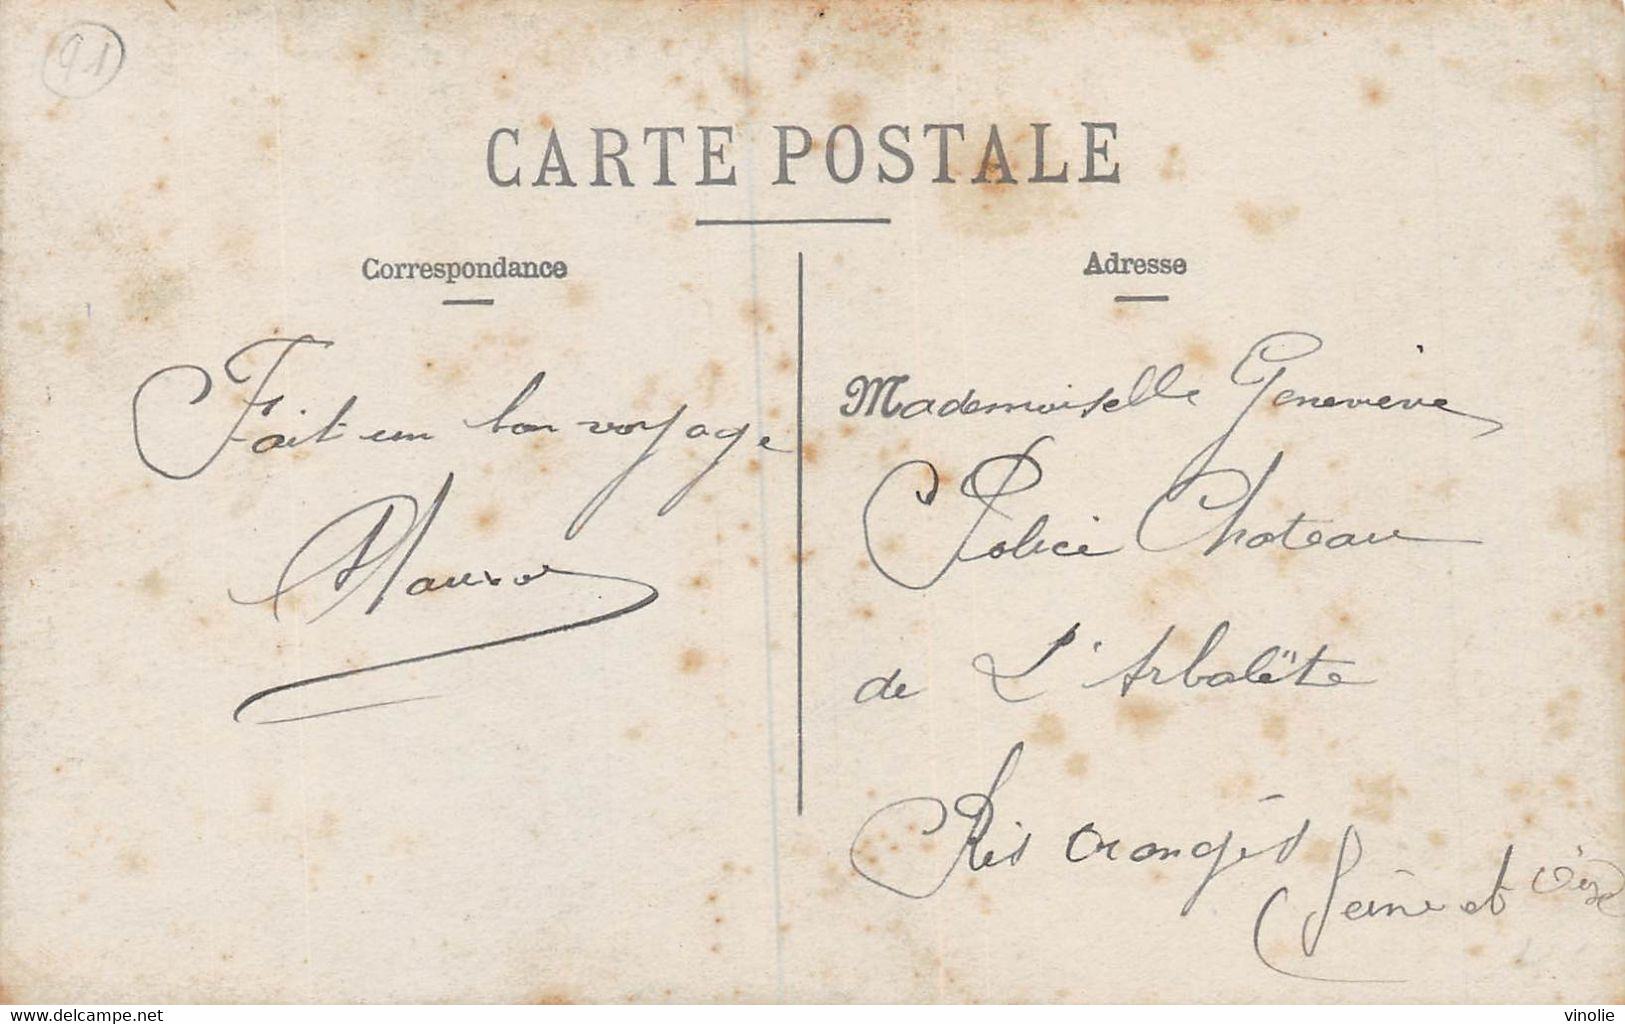 91
CARTE POSTALE
Correspondance
Adresse
Fait un bon voyage
Mademoiselle Geneviève
Police Chateau
de L'Arbalëte
Ris orangés
Seine et Oise
www.delcampe.net
vinolie